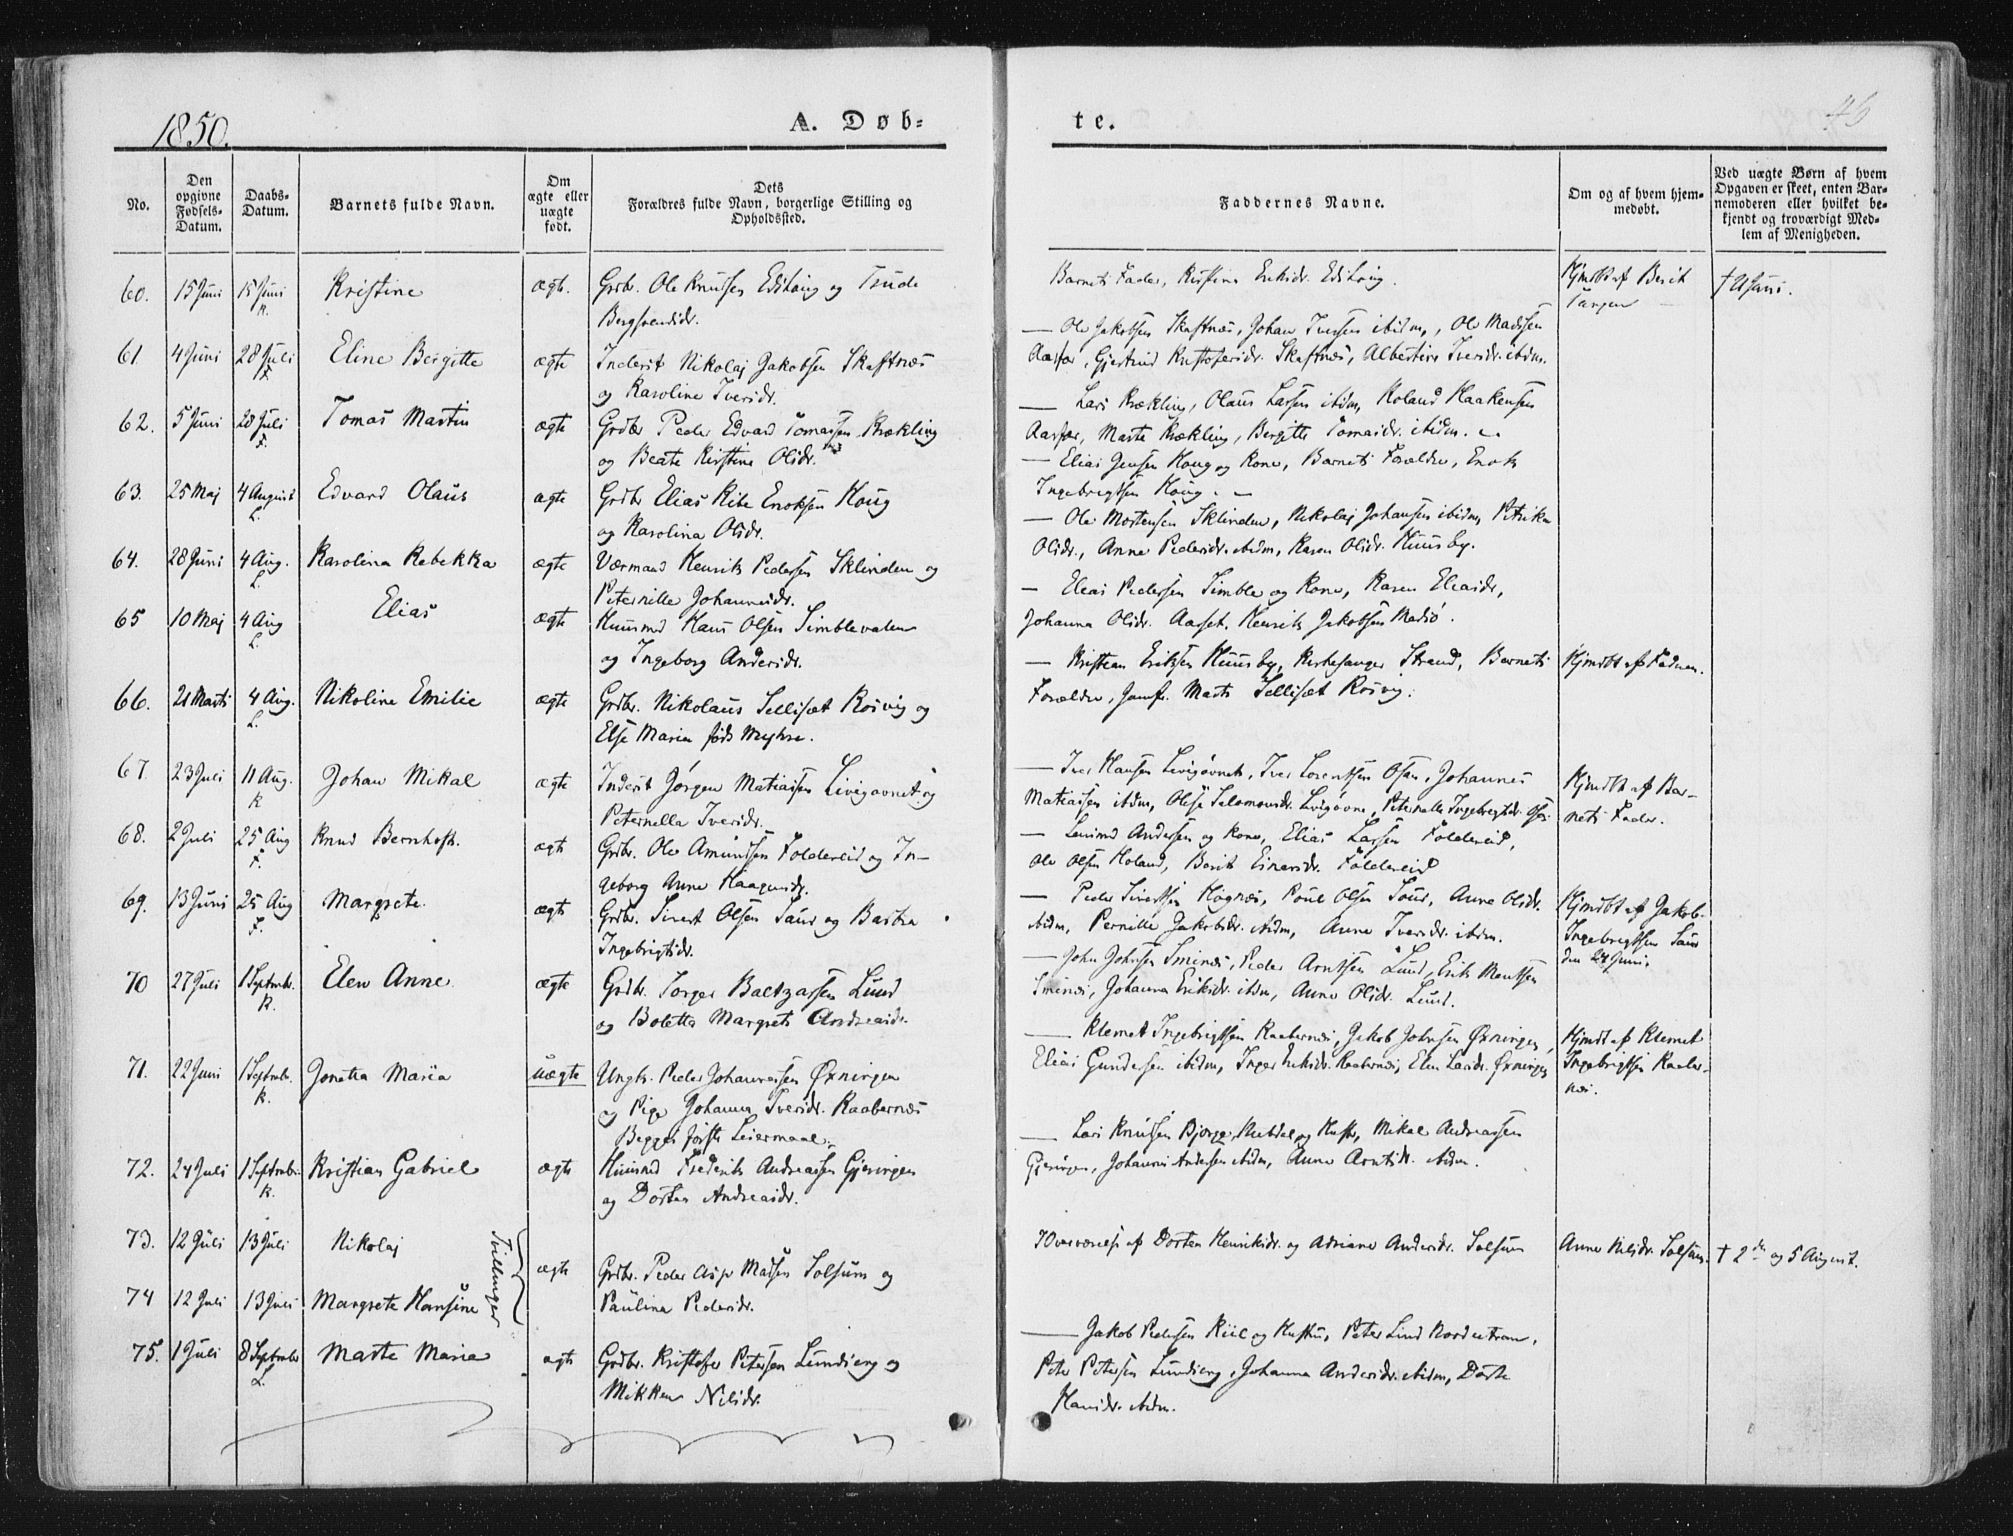 1850.
A. Døb-
te.
46
No.
Den opgivne Fødsels-Datum.
Daabs-Datum.
Barnets fulde Navn.
Om ægte eller uægte født.
Dets Forældres fulde Navn, borgerlige Stilling og Opholdssted.
Faddernes Navne.
Om og af hvem hjem-medøbt.
Ved uægte Børn af hvem Opgaven er skeet, enten Bar-nemoderen eller hvilket be-kjendt og troværdigt Med-lem af Menigheden.
60. 15 Juni 15 Juni Kristine ægt. Grdbr. Ole Knutsen Edshoug og
K.
Barnets Fader, Kristine Eriksdr. Edshoug.
Hjmdbt af Berit
61. 4 Juni 28 Juli Eline Bergitte ægte Inderst Nikolaj Jakobsen Skaftnæs
F.
og Karoline Iversdr.
— Ole Jakobsen Skaftnæs, Johan Iversen ibidm, Ole Madssen
Aarfor, Gjertrud Kristofersdr. Skaftnæs, Albertine Iversdr. ibidm.
62. 5 Juni 28 Juli Tomas Martin ægte Grdbr Peder Edvard Tomassen Krækling
F.
og Beate Kirstine Olsdr.
— Lars Krækling, Olaus Larsen ibidm, Roland Haakensen
Aarfor, Marte Krækling, Bergitte Tomasdr. ibidm.
63. 25 Maj 4 August Edvard Olaus ægte Grdbr Elias Ribe Enoksen Houg
L.
og Karolina Olsdr.
— Elias Jensen Houg og Kone, Barnets Forældre, Enok
Ingebrigtsen Houg.
64. 28 Juni 4 Aug. Karolina Rebekka ægte Værmand Henrik Pedersen Sklinden og
L.
Peternille Johannesdr.
— Ole Mortensen Sklinden, Nikolaj Johansen ibidm, Petrikke
Olsdr., Anne Pedersdr. ibidm, Karen Olsdr. Huusby.
65 10 Maj 4 Aug Elias ægte Huusmd Hans Olsen Simblevalen
L.
og Ingeborg Andersdr.
— Elias Pedersen Simble og Kone, Karen Eliasdr,
Johanna Olsdr. Aarset. Henrik Jakobsen Madsø.
66. 21 Marts 4 Aug. Nikoline Emilie ægte Grdbr. Nikolaus Sellisæt Rosvig og
L.
Else Maria født Myhre.
— Kristian Eriksen Huusby, Kirkesanger Strand, Barnets
Forældre, Jomfr. Marte Sellisæt Rosvig.
Hjmdbt af Fadren.
67. 23 Juli 11 Aug. Johan Mikal ægte Inderst Jørgen Matiassen Livigøvnet og
K
Peternella Iversdr.
— Iver Hansen Livigøvnet, Iver Lorentsen Osen, Johannes
Matiassen ibidm, Olise Salomonsdr. Livigøvne, Peternelle Ingebrigtsdr. Osen
Hjmdbt af Bar-
nets Fader.
68. 2 Juli 25 Aug Knud Bernhoft. ægte Grdbr. Ole Amundsen Foldereid og In-
F.
geborg Anne Haagensdr.
— Andersen og Kone, Elias Larsen Foldereid,
Ole Olsen Holand, Berit Einersdr. Foldereid
69. 13 Juni 25 Aug Margrete ægte Grdbr. Sivert Olsen Saur og Barbra
F.
Ingebrigtsdr.
— Peder Sivertsen Hognes, Poul Olsen Saur, Anne Olsdr.
ibidm, Pernille Jakobsdr. ibidm, Anne Iversdr. ibidm.
Hjmdbt af Jakob
Ingebrigtsen Saur
den 24 Juni.
70 27 Juli 1 Septmbr. Elen Anne ægte Grdbr. Torger Baltzarsen Lund
K.
og Boletta Margrete Andreasdr.
— John Johnsen Smines, Peder Arntsen Lund, Erik Mentsen
Smines, Johanna Eriksdr. ibidm, Anne Olsdr. Lund.
71. 22 Juni 1 Septmbr. Jonetta Maria uægte Ungk. Peder Johannessen Øxningen
K.
og Pige Johanna Iversdr. Raabernæs
Begges første Leiermaal.
— Klemet Ingebrigtsen Raabernæs, Jakob Johnsen Øxningen,
Elias Gundersen ibidm, Inger Eriksdr. Raabernæs, Elen Larsdr. Øxningen
Hjmdt af Klemet
Ingebrigtsen Raaber-
næs.
72. 24 Juli 1 Septmbr. Kristian Gabriel ægte Huusmd Frederik Andreassen Gjesingen
K.
og Dorten Andreasdr.
— Lars Knutsen Bjørge, Nubdal og Hustr, Mikal Andreassen
Gjesingen, Johannes Andersen ibidm, Anne Arntsdr. ibidm.
73. 12 Juli 13 Juli Nikolaj
Tvillinger
ægte Grdbr. Peder Asp Madsen Solsum og
Paulina Pedersdr.
I Overværelse af Dorten Henriksdr. og Adriane Andersdr. Solsum
Anne Nilsdr. Solsum.
† 2den og 5 August.
74 12 Juli 13 Juli Margrete Hansine
75. 1 Juli 8 Septmbr Marte Maria ægte Grdbr. Kristofer Petersen Lundseng og
L.
Mikken Nilsdr.
— Jakob Pedersen Kiil og Hustru, Peter Lund
Peter Petersen Lundseng, Johanna Andersdr. ibidm, Dorte
Hansdr. ibidm.